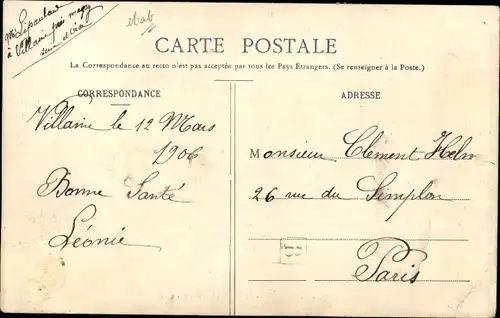 à Villaine près magny
seine et oise
CARTE POSTALE
La Correspondance au recto n'est pas acceptée par tous les Pays Étrangers. (Se renseigner à la Poste.)
CORRESPONDANCE
Villaine le 12 Mars
1906
Bonne Santé
Léonie
ADRESSE
Monsieur Clement
26 rue du Simplon
Paris